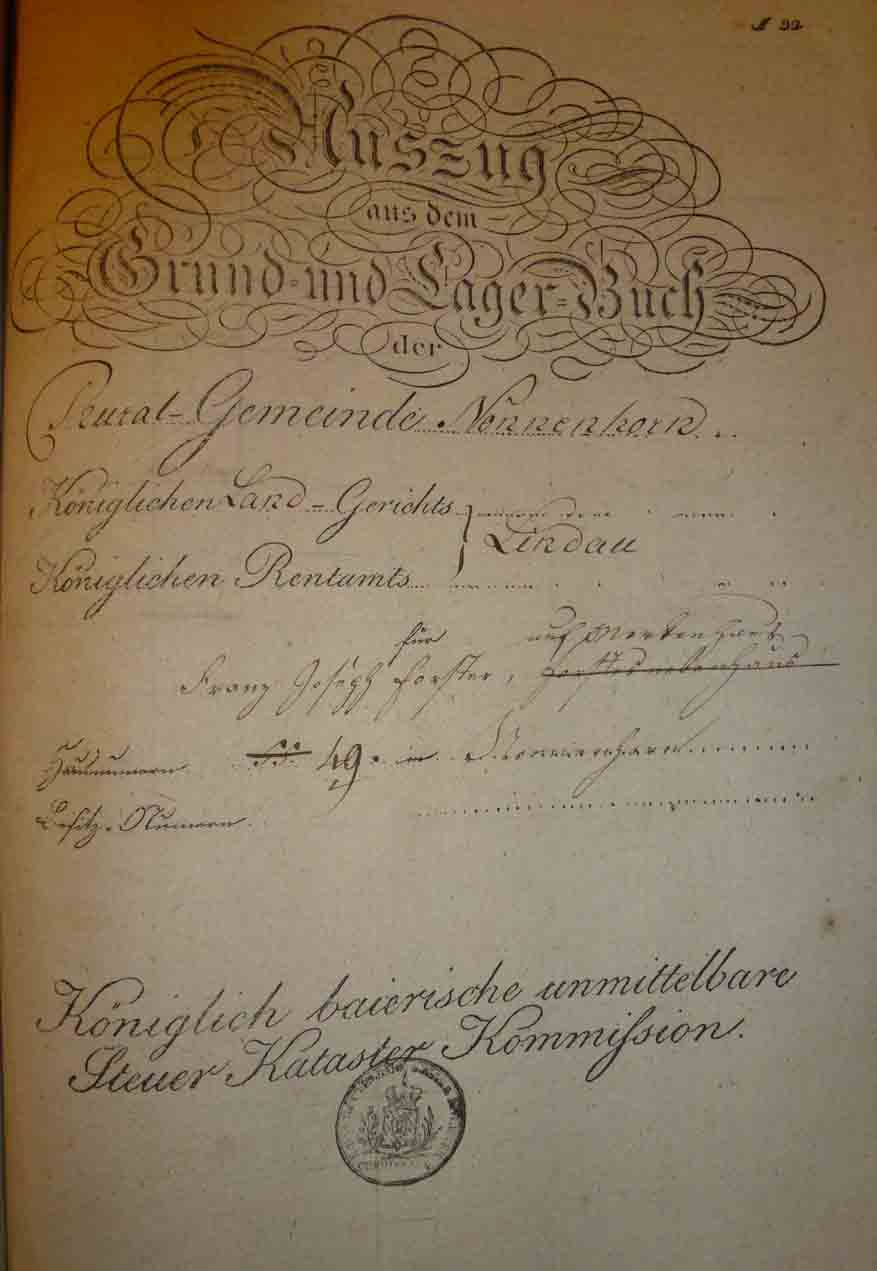 22
Auszug
aus dem
Grund- und Lager-Buch
der
Rural-Gemeinde Nonnenhorn
Königlichen Land-Gerichts
Lindau
Königlichen Rentamts
für
Franz Joseph Forster,
Hausnummern 49. in Nonnenhorn
Besitz-Numern
Königlich baierische unmittelbare
Steuer Kataster Kommißion.